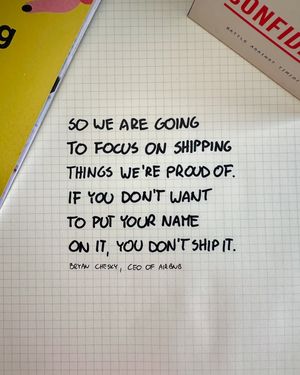 g
CONFID
BATTLE AGAINST TIMID
SO WE ARE GOING
TO FOCUS ON SHIPPING
THINGS WE'RE PROUD OF.
IF YOU DON'T WANT
TO PUT YOUR NAME
ON IT, YOU DON'T SHIP IT.
BRYAN CHESKY, CEO OF AIRBNB